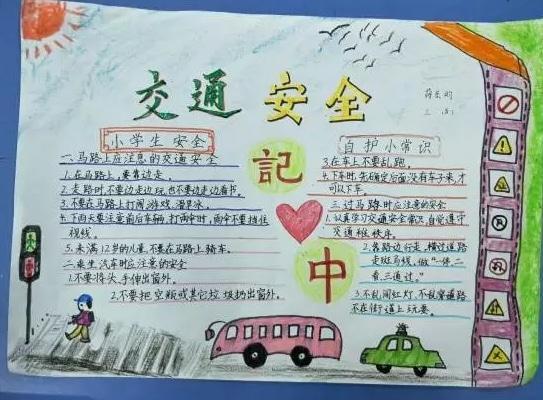 交通安全
小学生安全
一、马路上应注意的交通安全
1.在马路上,要靠边走。
2.走路时,不要边走边玩,也不要边走边看书。
3.不要在马路上打闹、游戏、溜旱冰。
4.下雨天要注意前后车辆,打雨伞时,雨伞不要挡住
视线。
5.未满12岁的儿童,不要在马路上骑车。
二.乘坐汽车时应注意的安全
1.不要将头,手伸出窗外。
2.不要把空瓶或其它垃圾扔出窗外。
記
中
自护小常识
3.在车上不要乱跑。
4.下车时,先确定后面没有车子来,才
可以下车。
三.过马路时应注意的安全
1.认真学习交通安全常识,自觉遵守
交通秩序。
2.靠路边行走,横过道路
走斑马线,做“一停二
看三通过。”
3.不乱闯红灯,不乱穿道路
不在街道上玩耍。